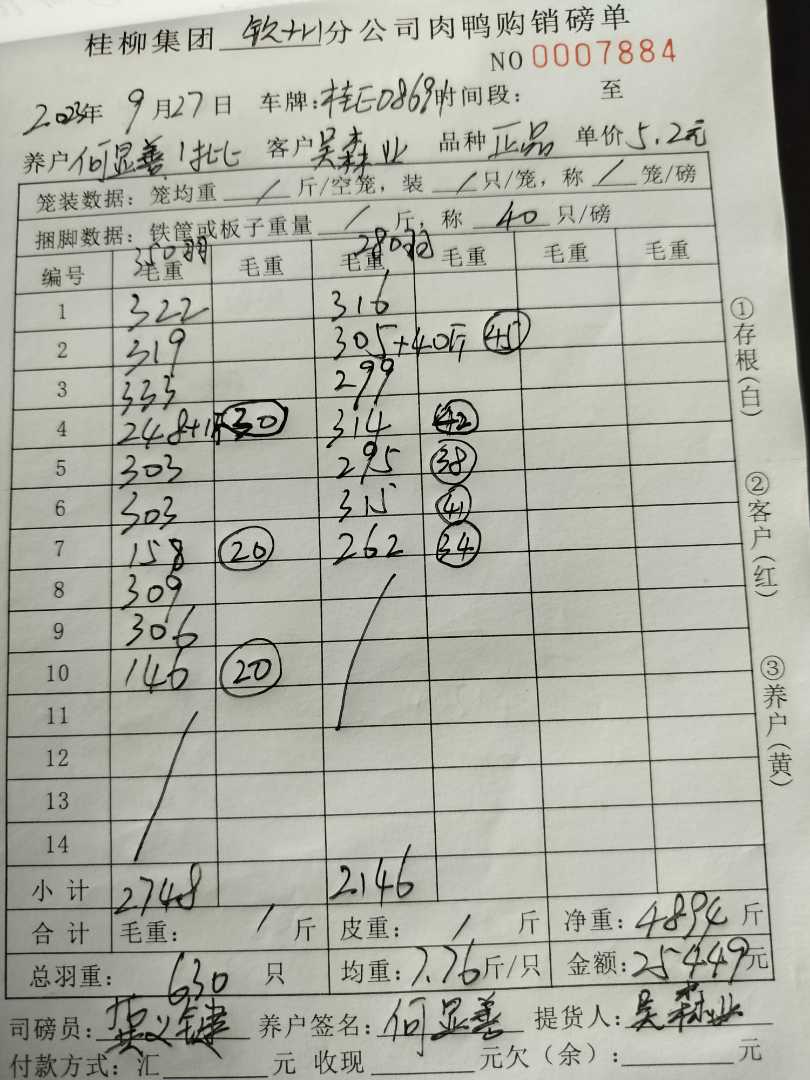 桂柳集团 钦州分公司肉鸭购销磅单
NO 0007884
2023年 9月27日 车牌:桂E0869 时间段: 至
养户 何显善 1批 客户 吴森业 品种 正品 单价 5.2元
笼装数据: 笼均重 / 斤/空笼, 装 / 只/笼, 称 / 笼/磅
捆脚数据: 铁筐或板子重量 / 斤, 称 40 只/磅
350羽 280羽
编号 毛重 毛重 毛重 毛重 毛重 毛重
1 322 316
2 319 305+40斤 45
3 333 299
4 248+1斤 30 314 42
5 303 295 38
6 303 315 41
7 158 20 262 34
8 309
9 306
10 146 20
11
12
13
14
小计 2748 2146
合计 毛重: / 斤 皮重: / 斤 净重: 4894 斤
总羽重: 630 只 均重: 7.76 斤/只 金额: 25449 元
司磅员: 养户签名: 何显善 提货人: 吴森业
付款方式: 汇 元 收现 元欠(余): 元
①存根(白)
②客户(红)
③养户(黄)